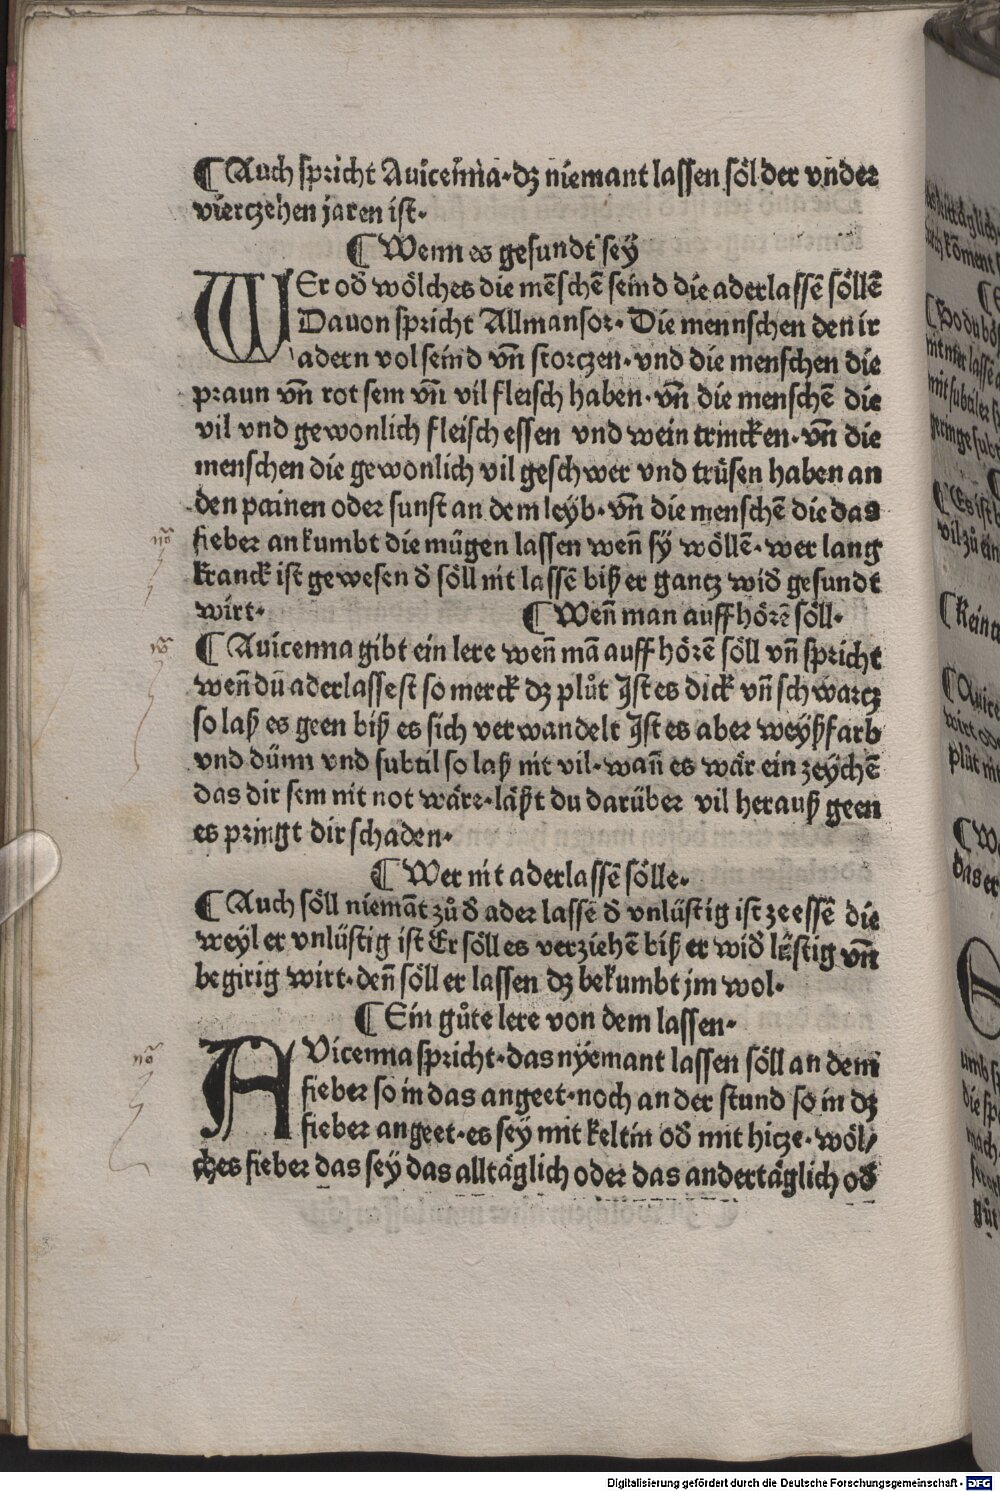 ¶ Auch spricht Auicenna · dz niemant lassen söl der vnder
vierczehen jaren ist ·
¶ Wenn es gesundt sey
WEr od̄ wölches die mēschē seind die aderlassē söllē
Dauon spricht Allmansor · Die mennschen den ir
adern vol seind vn̄ storczen · vnd die menschen die
praun vn̄ rot sein vn̄ vil fleisch haben · vn̄ die menschē die
vil vnd gewonlich fleisch essen vnd wein trincken · vn̄ die
menschen die gewonlich vil geschwer vnd trüsen haben an
den painen oder sunst an dem leyb · vn̄ die menschē die das
fieber ankumbt die mügen lassen wen̄ sy wöllē · wer lang
kranck ist gewesen d̄ söll nit lassē biß er gantz wid̄ gesundt
wirt · ¶ Wen̄ man auff hörē söll ·
¶ Auicenna gibt ein lere wen̄ mā auff hörē söll vn̄ spricht
wen̄ du aderlassest so merck dz plůt Jst es dick vn̄ schwarcz
so laß es geen biß es sich verwandelt Jst es aber weyßfarb
vnd dünn vnd subtil so laß nit vil · wan̄ es wär ein zeychē
das dir sein nit not wäre · läßt du darüber vil herauß geen
es pringt dir schaden ·
¶ Wer nit aderlassē sölle ·
¶ Auch söll niemāt zů d̄ ader lassē d̄ vnlüstig ist ze essē die
weyl er vnlüstig ist Er söll es verziehē biß er wid̄ lüstig vn̄
begirig wirt · den̄ söll er lassen dz bekumbt jm wol ·
¶ Ein gůte lere von dem lassen ·
AVicenna spricht · das nyemant lassen söll an dem
fieber so in das angeet · noch an der stund so in dz
fieber angeet · es sey mit keltin od̄ mit hicze · wöl/
ches fieber das sey das alltäglich oder das andertäglich od̄
nō
nō
nō
Digitalisierung gefördert durch die Deutsche Forschungsgemeinschaft - DFG